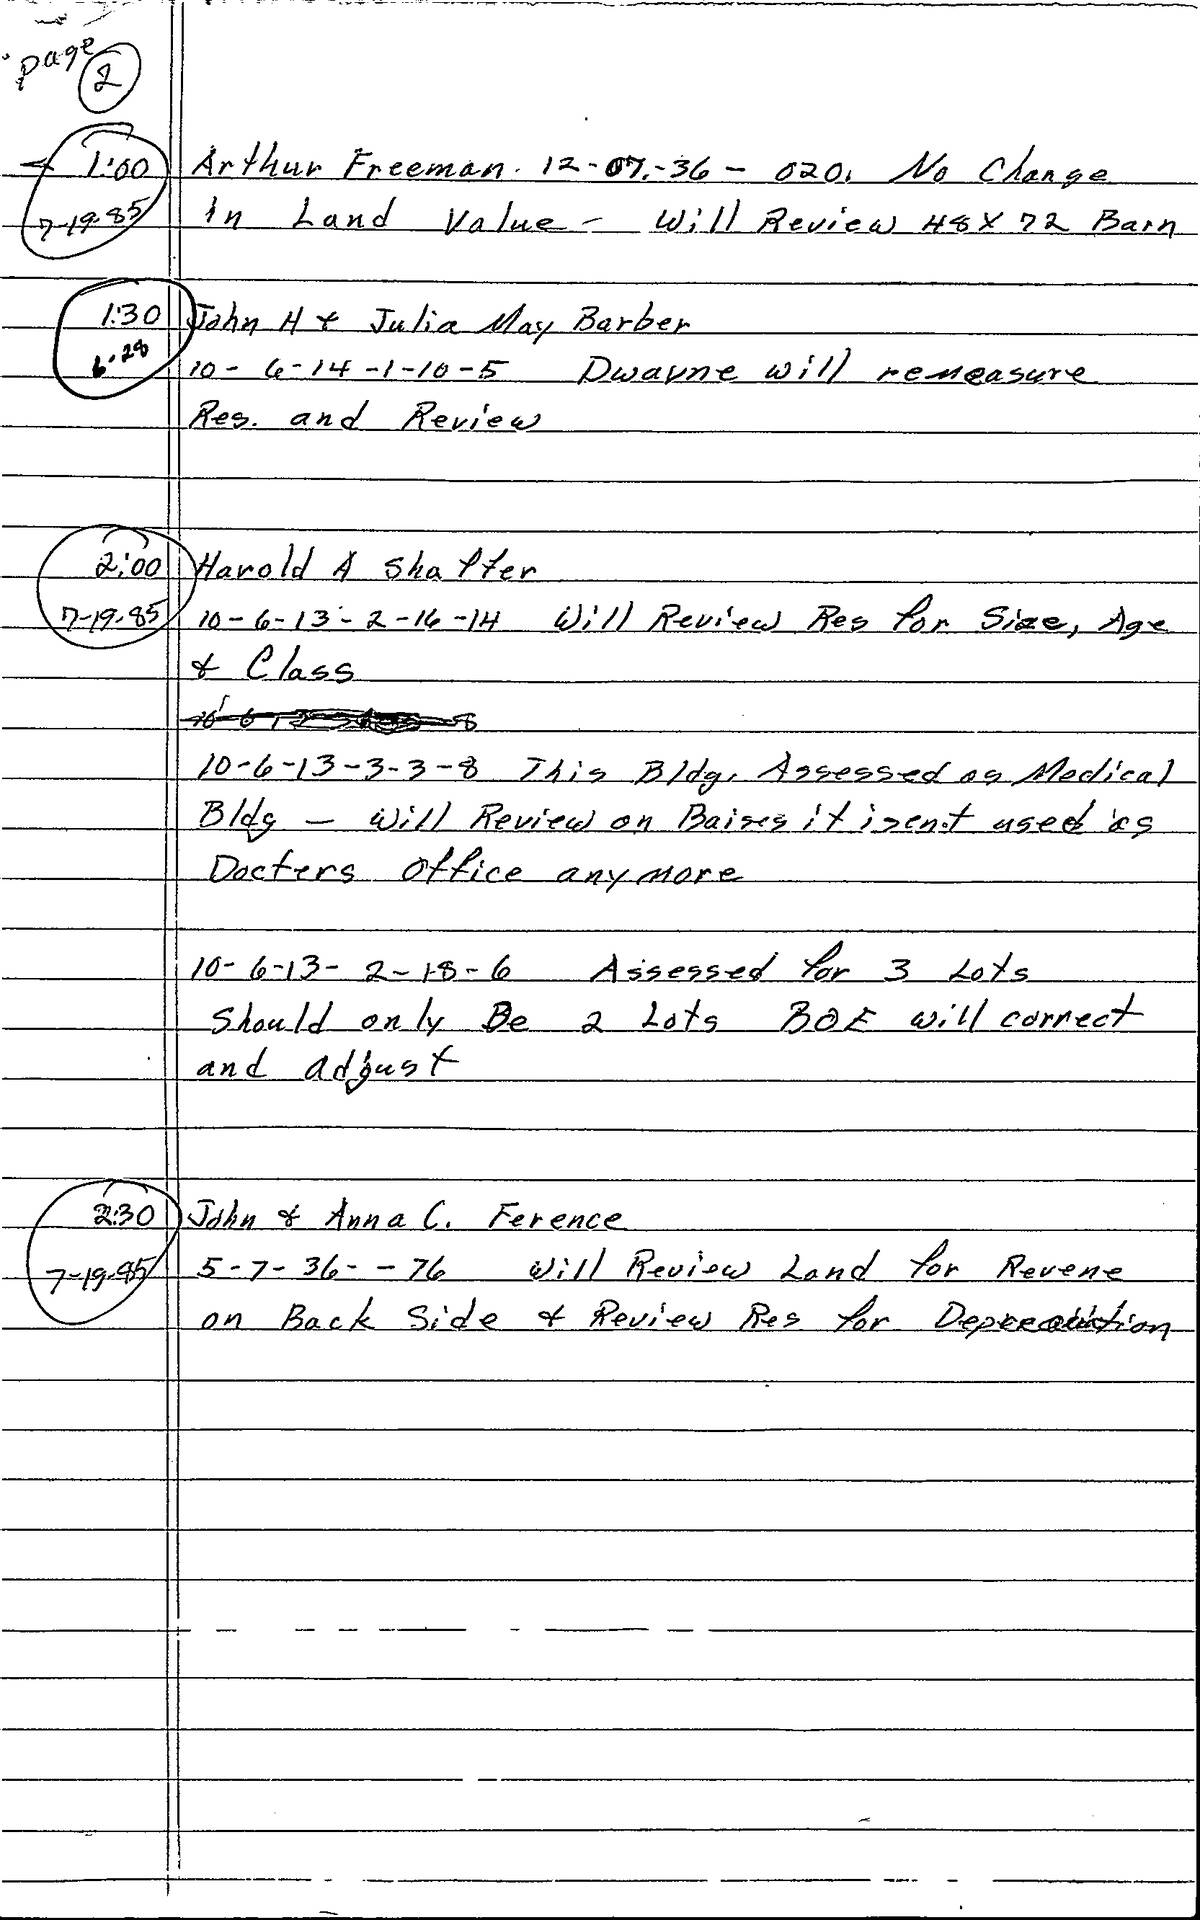 page 2
1:00 Arthur Freeman. 12-07-36- 020. No Change
7-19-85 In Land Value - Will Review 48 X 72 Barn
1:30 John H & Julia May Barber
6-28 10- 6-14-1-10-5 Dwayne will remeasure
Res. and Review
2:00 Harold A Shaffer
7-19-85 10-6-13-2-16-14 Will Review Res for Size, Age
& Class
10-6-13-3-3-8 This Bldg. Assessed as Medical
Bldg - Will Review on Baises it isen't used as
Docters Office anymore
10-6-13- 2-18-6 Assessed for 3 Lots
Should only Be 2 Lots BOE will correct
and adjust
2:30 John & Anna C. Ference
7-19-85 5-7-36- -76 Will Review Land for Revene
on Back Side & Review Res for